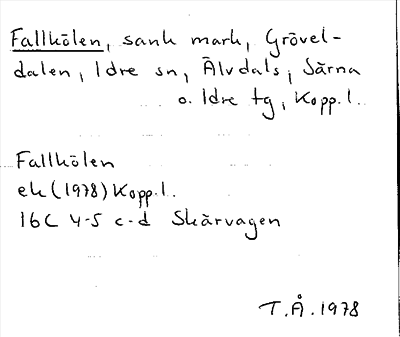 Fallkölen, sank mark, Grövel-
dalen, Idre sn, Älvdals, Särna
o. Idre tg, Kopp. l.
Fallkölen
ek (1978) Kopp. l.
16C 4-5 c-d Skärvagen
T.Å. 1978